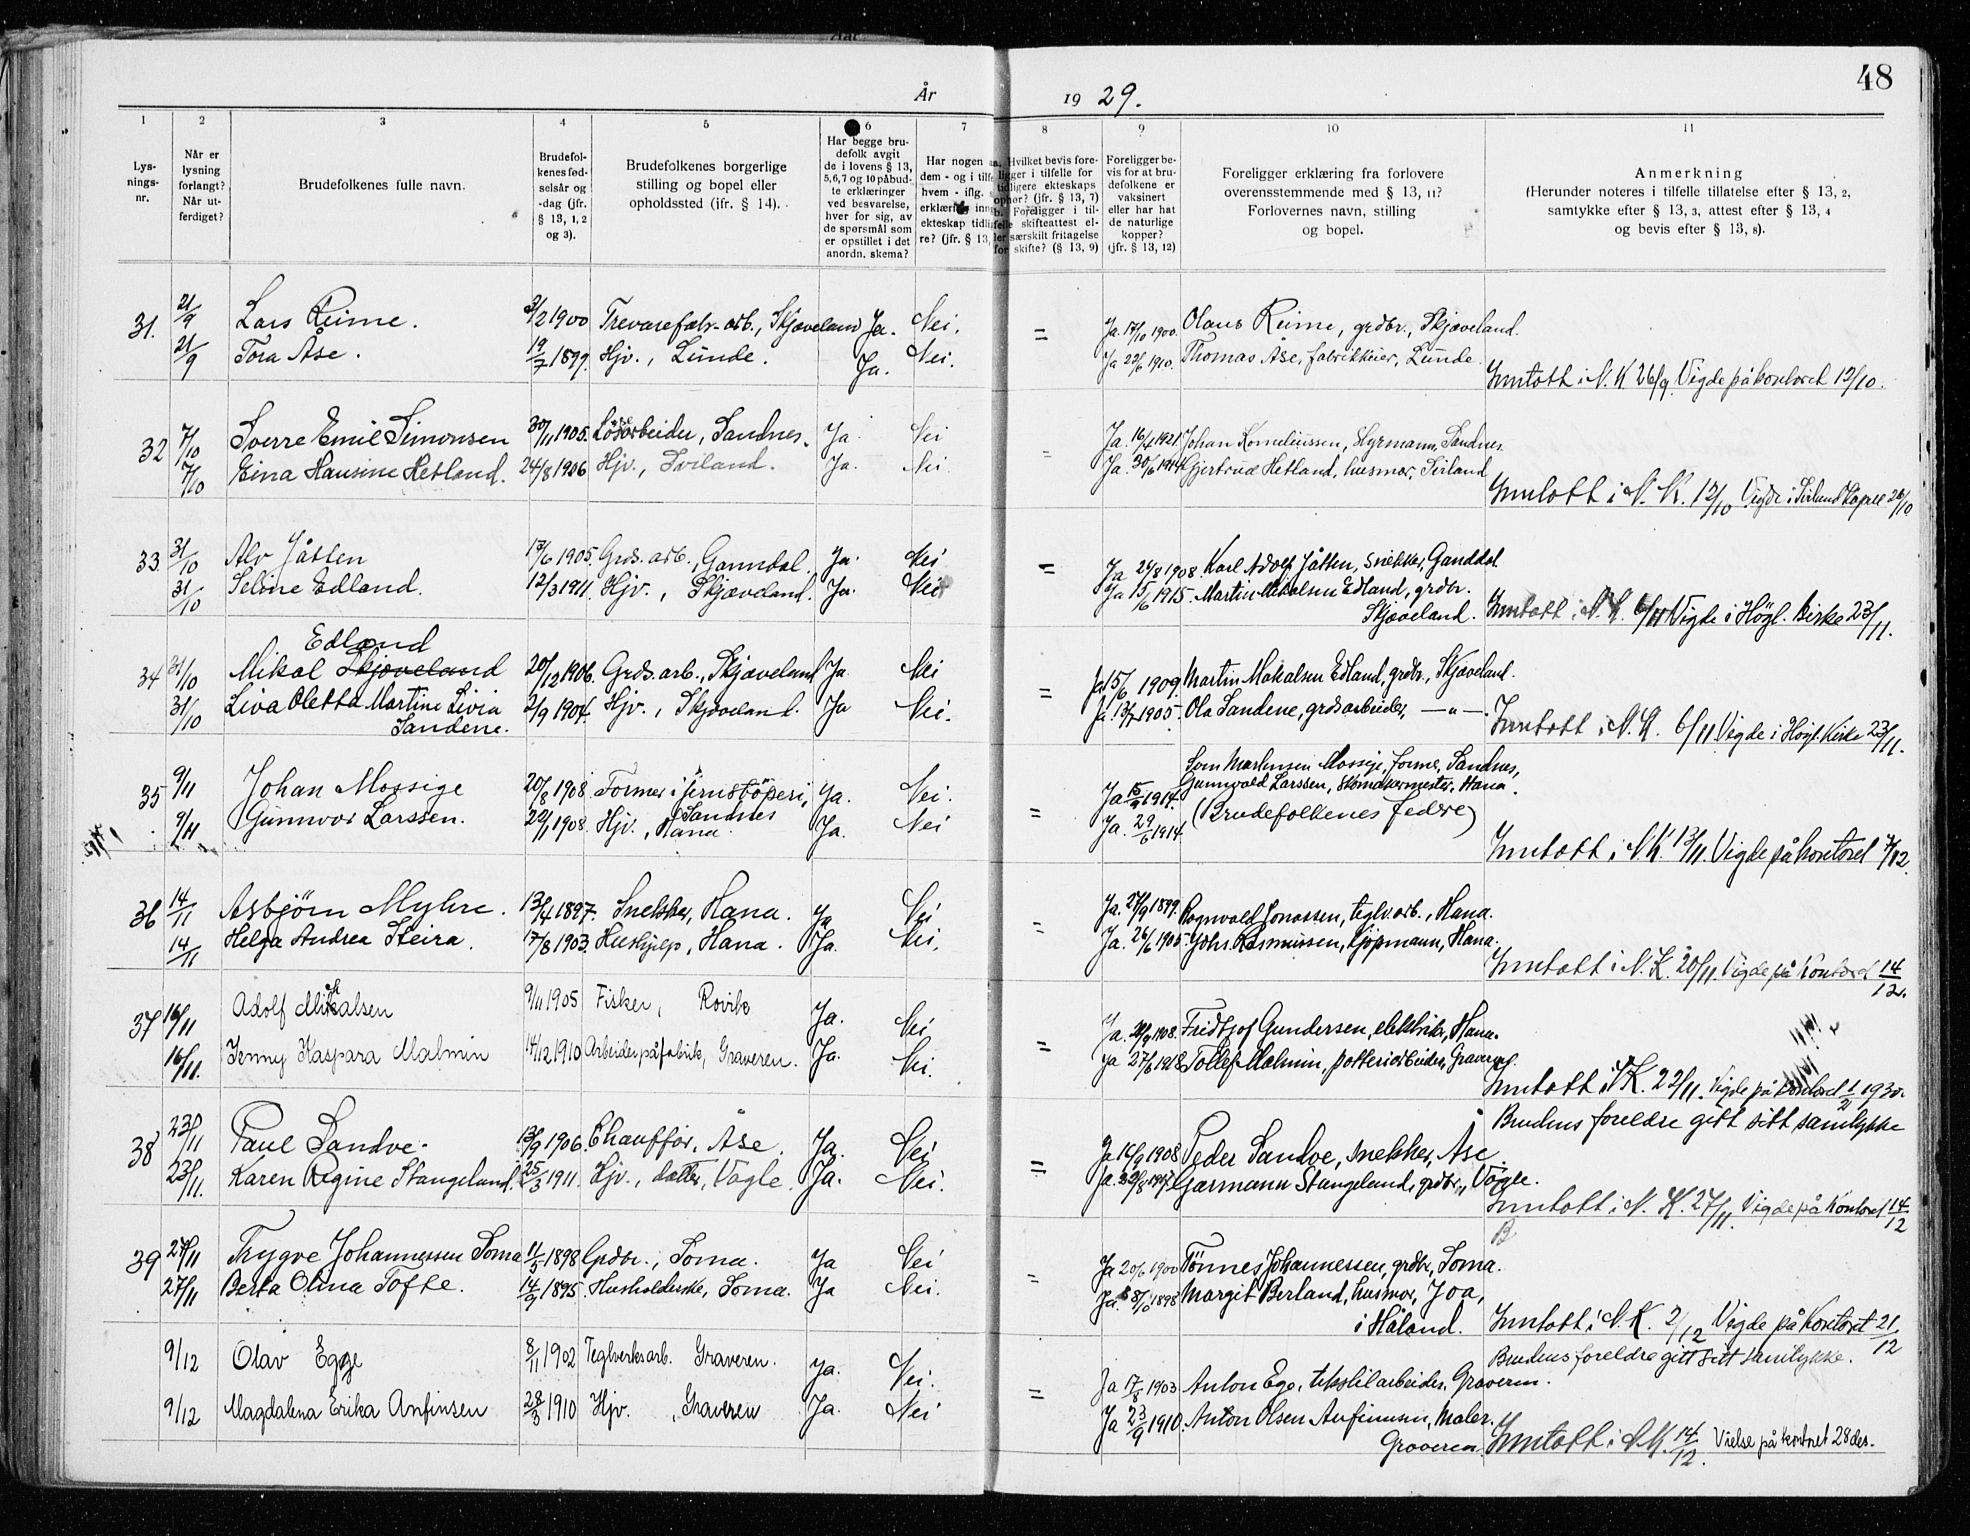 År 1929.
48
1 2 3 4 5 6 7 8 9 10 11
Lysnings-nr.
Når er lysning forlangt? Når utferdiget?
Brudefolkenes fulle navn.
Brudefolkenes fødselsår og -dag (jfr. § 13, 1, 2 og 3).
Brudefolkenes borgerlige stilling og bopel eller opholdssted (ifr. § 14).
Har begge brudefolk avgit de i lovens § 13, 5,6,7 og 10 påbudte erklæringer ved besvarelse, hver for sig, av de spørsmål som er opstillet i det anordn. skema?
Har nogen
dem - og i tilfe
hvem - iflg.
erklæring inng
ekteskap tidli
re? (jfr. § 13,
Hvilket bevis fore-
ligger i tilfelle for
tidligere ekteskaps
ophør? (jfr. § 13, 7)
b. Foreligger i til-
felle skifteattest el-
ler særskilt fritagelse
for skifte? (§ 13, 9)
Foreligger bevis for at brudefolkene er vaksinert eller har hat de naturlige kopper? (jfr. § 13, 12)
Foreligger erklæring fra forlovere overensstemmende med § 13, 11? Forlovernes navn, stilling og bopel.
Anmerkning (Herunder noteres i tilfelle tillatelse efter § 13, 2, samtykke efter § 13, 3, attest efter § 13, 4 og bevis efter § 13, 8).
31. 21/9 Lars Reime. 3/2 1900 Trevarefabr-arb., Skjæveland Ja. Nei. = Ja. 17/10 1900. Olaus Reime, grdbr., Skjæveland.
21/9 Tora Åse. 19/7 1899. Hjv., Lunde. Ja. Nei. Ja 22/6 1910. Thomas Åse, fabrikkeier, Lunde.
Inntatt i N. K. 26/9. Vigde på kontoret 12/10.
32 7/10 Sverre Emil Simonsen 30/11 1905. Løsarbeider, Sandnes. Ja. Nei - Ja. 16/4 1921. Johan Korneliussen, styrmann, Sandnes.
7/10 Eina Hansine Hetland. 24/8 1906 Hjv., Sviland. Ja. Nei. Ja. 30/6 1914 Gjertrud Hetland, husmor, Sviland
Inntatt i N. K. 12/10 Vigde i Sviland Kapell 26/10
33 31/10 Alv Jåtten 17/6 1905. Grds. arb., Ganndal. Ja. Nei = Ja 24/8 1908. Karl Adolf Jåtten, snekker, Ganddal
31/10 Seline Edland. 12/3 1911. Hjv., Skjæveland. Ja. Nei Ja 15/6 1915. Martin Mikalsen Edland, grdbr.
Skjæveland. Inntatt i N. K. 6/11 Vigde i Högl. kirke 23/11.
Edland
34 31/10 Mikal Skjæveland 20/12 1906. Grds. arb., Skjæveland Ja Nei = Ja 15/6 1909. Martin Makalsen Edland, grdbr., Skjæveland.
31/10 Liva Oletta Martine Livia 2/9 1904. Hjv., Skjæveland. Ja Nei. Ja. 13/7 1905. Ola Sandene, grdsarbeider, —"—.
Sandene. Inntatt i N. K. 6/11. Vigde i Högl. Kirke 23/11.
Mossige, former, Sandnes,
35 9/11 Johan Mossige 20/8 1908. Former i jernstöperi, Ja. Nei. = Ja 15/9 1914. Gunnvald Larssen, Skomakermester, Hana.
Sandnes
9/11 Gunnvor Larssen. 22/1 1908. Hjv., Hana. Ja. Nei Ja. 29/6 1914. (Brudefolkenes fedre)
Inntatt i N. K. 13/11. Vigde på kontoret 7/12.
36 14/11 Asbjörn Myhre. 13/4 1897. Snekker, Hana. Ja Nei = Ja. 27/9 1899. Ragnvald Jonassen, teglv. arb., Hana.
14/11 Helga Andrea Steira. 17/8 1903. Hushjelp, Hana. Ja. Nei. Ja. 26/6 1905. Johs. Rasmussen, kjøpmann, Hana.
Inntatt i N. K. 20/11. Vigde på Kontoret 14/12.
37 16/11 Adolf Mikalsen 9/11 1905 Fisker, Rovik Ja. Nei = Ja. 20/9 1908. Fridtjof Gundersen, elektrikr., Hana.
16/11. Jenny Kaspara Malmin 14/12 1910 Arbeider på fabrik, Graveren. Ja. Nei. Ja 27/6 1918. Tollef Malmin, potteriarbeider, Graveren.
Inntatt i N.K. 22/11. Vigde på kontoret 1/2 1930.
Brudens foreldre gitt sitt samtykke
38 23/11 Paul Sandve. 13/9 1906. Chauffør, Åse. Ja. Nei = Ja 16/9 1908 Peder Sandve, snekker, Åse.
23/11. Karen Regine Stangeland. 25/3 1911. Hjv., datter, Vagle. Ja. Nei. Ja. 22/8 1917. Garmann Stangeland, grdbr., Vagle.
Inntatt i N. K. 27/11. Vigde på Kontoret 14/12
B
39 27/11 Trygve Johannessen Soma 11/5 1898 Grdbr., Soma. Ja Nei = Ja 20/6 1900 Tönnes Johannessen, grdbr, Soma.
27/11 Berta Olina Tofte. 14/9 1895. Husholderske, Soma. Ja Nei. Ja. 8/10 1898 Margit Berland, husmor, Joa,
i Håland. Inntatt i N. K. 2/12 Vigde på Kontoret 21/12
Brudens foreldre gitt sitt samtykke.
9/12 Olav Egge 8/11 1902 Teglverksarb. Graveren. Ja. Nei. = Ja 17/8 1903 Anton Ege, tekstilarbeider, Graveren.
9/12 Magdalena Erika Anfinsen 28/3 1910 Hjv., Graveren Ja. Nei Ja 23/9 1910. Anton Olsen Anfinnsen, Maler.
Graveren. Inntatt i N. K. 14/12. Vielse på kontoret 28 des.